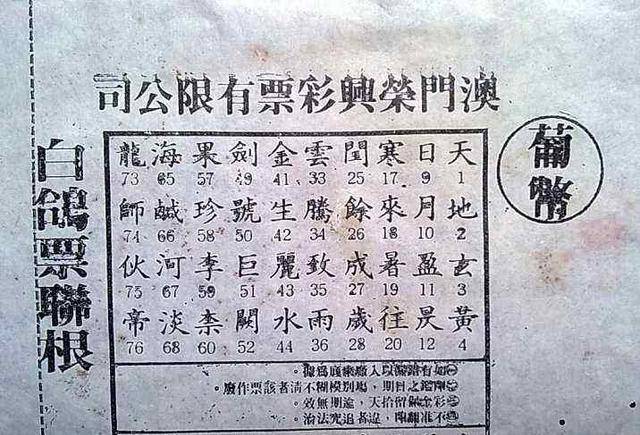 澳門榮興彩票有限公司
葡幣
天日寒閏雲金劍果海龍
1 9 17 25 33 41 49 57 65 73
地月來餘騰生號珍鹹師
2 10 18 26 34 42 50 58 66 74
玄盈暑成致麗巨李河伙
3 11 19 27 35 43 51 59 67 75
黃昃往歲雨水闕柰淡帝
4 12 20 28 36 44 52 60 68 76
如有錯漏以入廠票底為據。
之日期,場別模糊不清者該票作廢。
彩金保留拾天,逾期無效。
不准翻印,違者追究法治。
白鴿票聯根